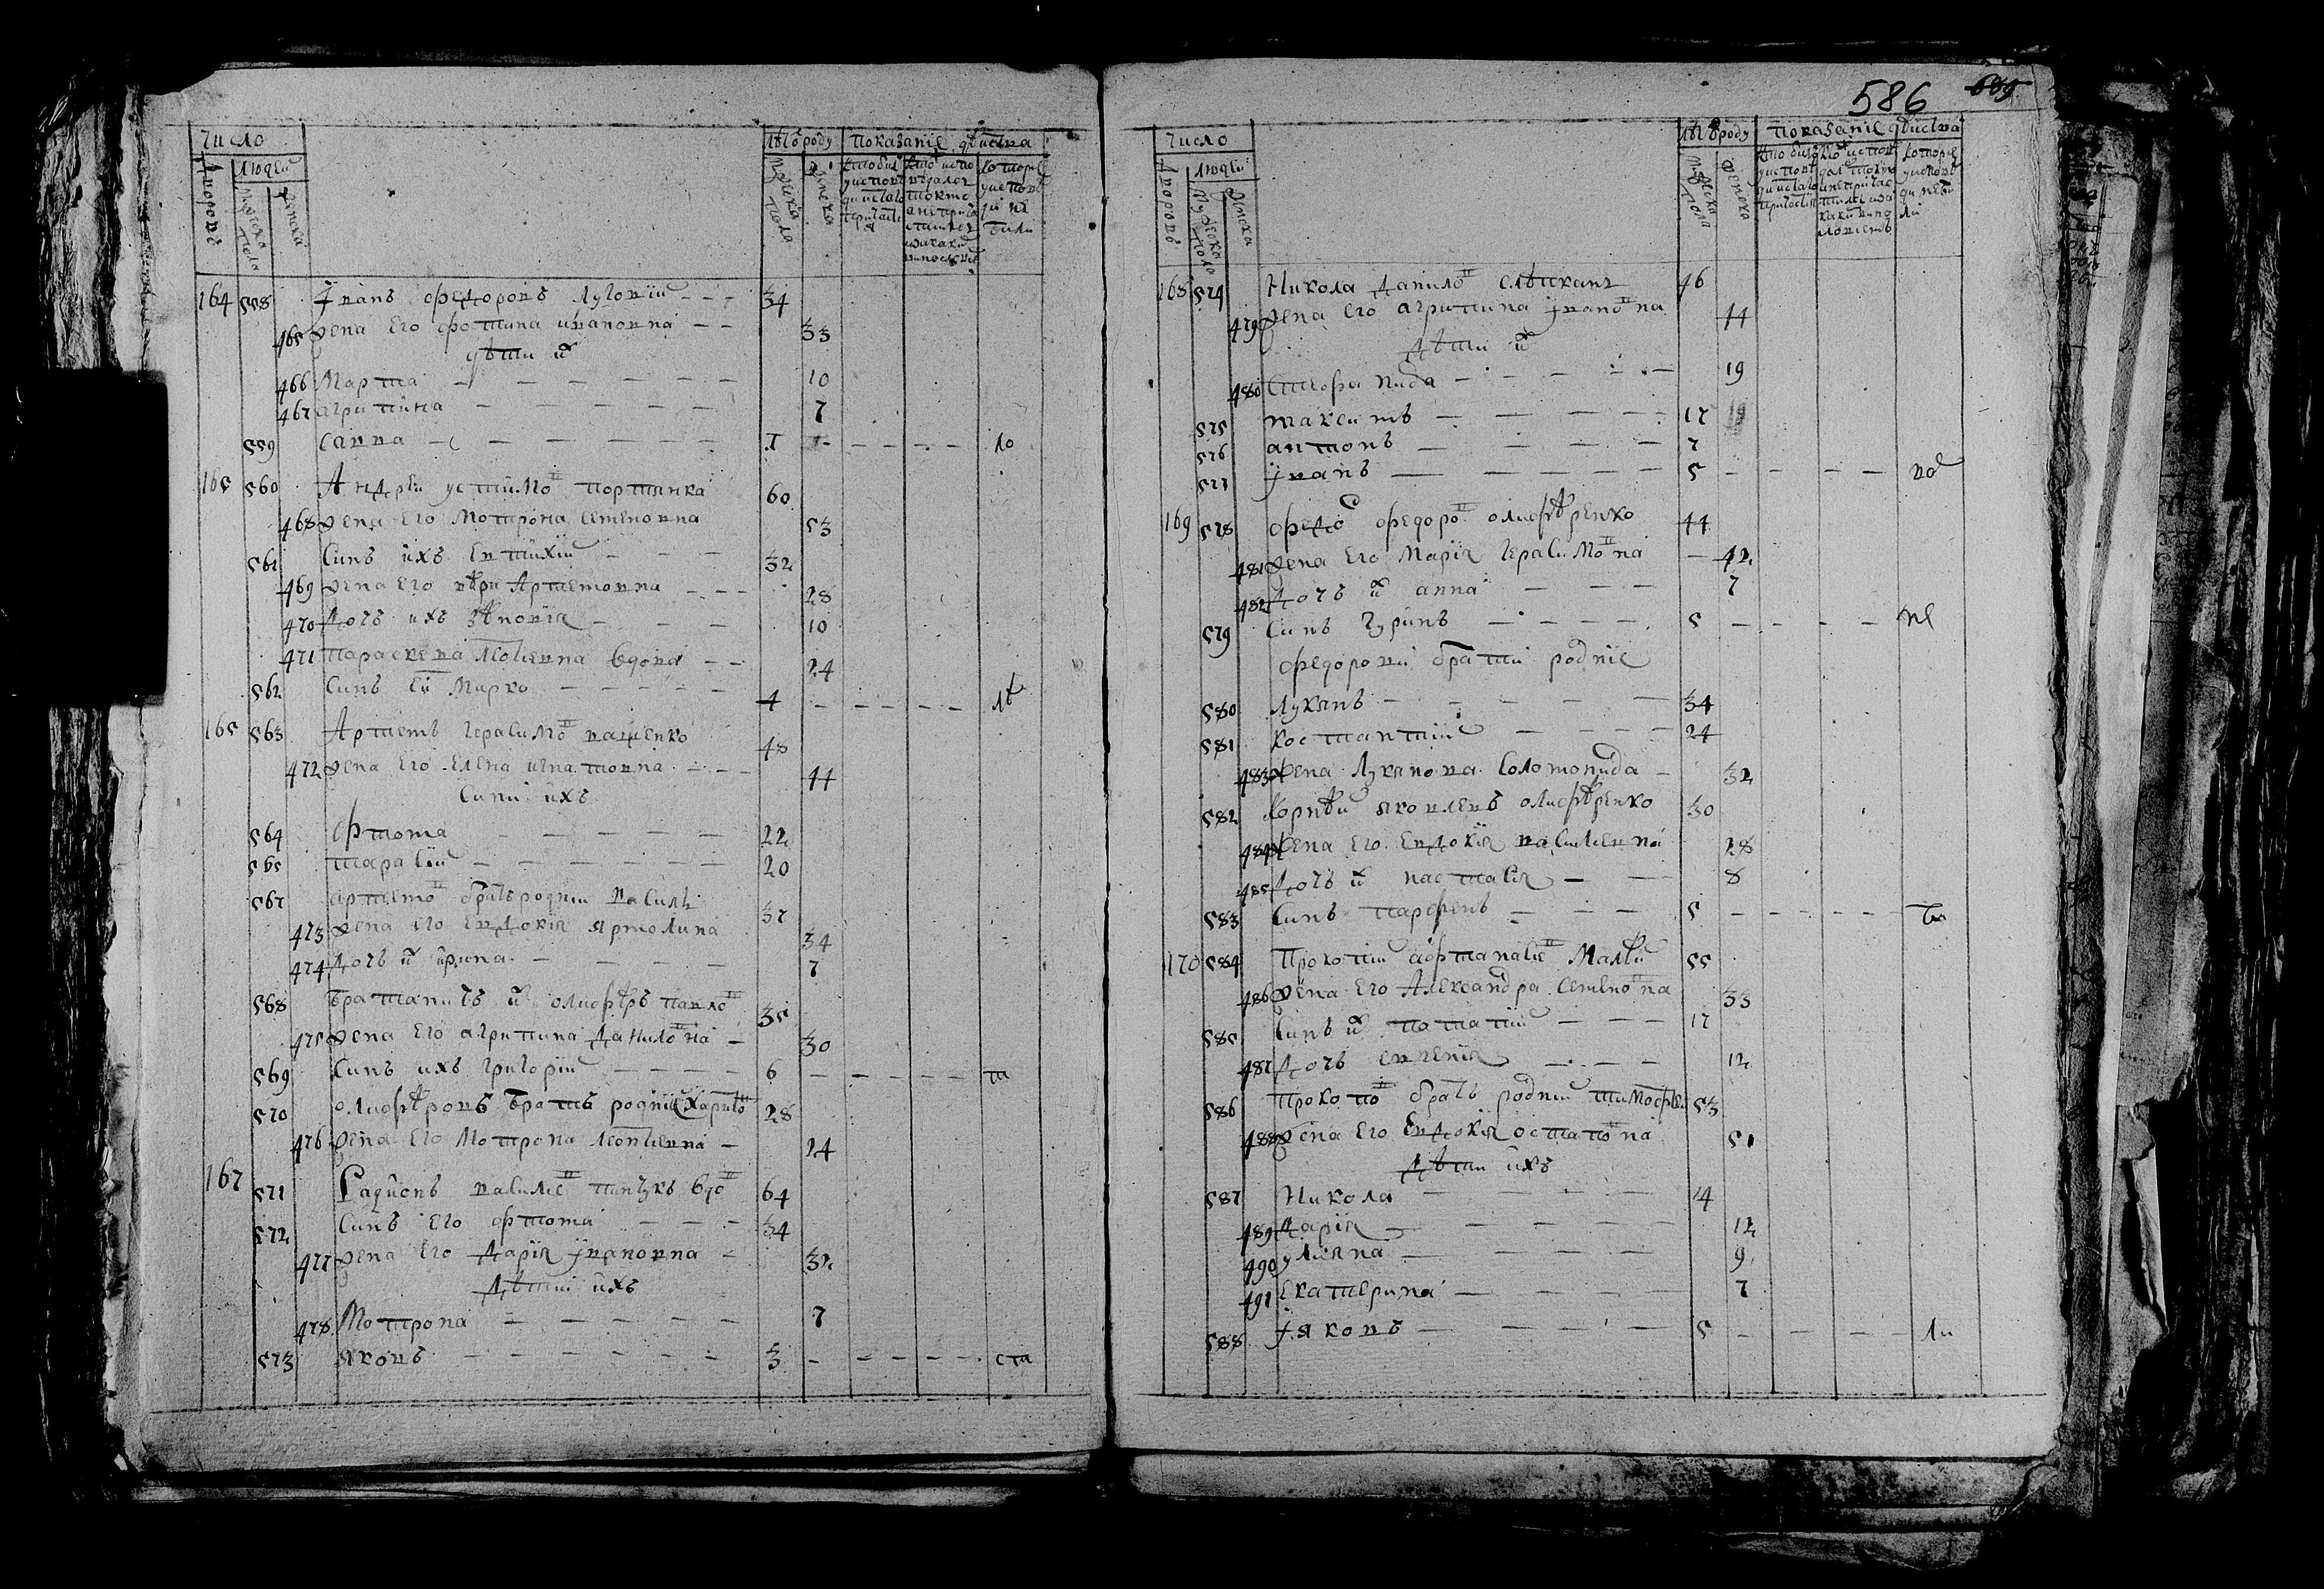 Число
Дворовъ
Людей
Мужеска пола
Женска
Лѣтъ ѿ роду
Мужеска пола
Женска
Показание дѣйства
164 558 Іванъ Федоровъ Луговій — — — 34
465 Жена его Фотина Ивановна — — 33
Дѣти их
466 Марта — — — — — — 10
467 Агрипина — — — — — 7
559 Савва — — — — — — 1 — — — — — ло
165 560 Андрѣй Устимов Портянка 60
468 Жена его Мотрона Семеновна 53
561 Синъ ихъ Евтихій — — — 32
469 Жена его Артемовна — — — 28
470 Дочъ ихъ Зѣновія — — — 10
471 Параскева вдова — — 24
562 Синъ ей Марко — — — — — 4 — — — — — лѣ
165 563 Артемъ Герасимов Ващенко 48
472 Жена его Елена Игнатовна — — — 44
Сини ихъ
564 Фтома — — — — — 22
565 Тарасій — — — — — — 20
567 Артемов братъ родний Василь 37
473 Жена его Евдокія Ярмолина 34
474 Дочъ их Ирина — — — — 7
568 Братаничъ их Олиферъ Павлов 35
475 Жена его Агрипина Данилов на — 30
569 Синъ ихъ Григорій — — — — 6 — — — — — т
570 Олиферовъ братъ родній Харито 28
476 Жена его Мотрона Леонтіевна — 24
167 571 Радионъ Василіев вдов 64
572 Синъ его Фтома — — — 34
477 Жена его Дарія Ивановна — 32
Дѣти ихъ
478 Мотрона — — — — — — 7
573 Яковъ — — — — — — — 3 — — — — — ста
586 669
Число
Дворовъ
Людей
Мужеска пола
Женска
Лѣтъ ѿ роду
Мужеска пола
Женска
Показание дѣйства
168 574 Никола Данилов 46
479 Жена его Агрипина Іванов на 44
Дѣти их
480 Стефанида — — — — — 19
575 Максимъ — — — — 17
576 Антонъ — — — — 7
577 Іванъ — — — — — 5 — — — — вос
169 578 Федо Федоров Олиферѣнко 44
481 Жена его Марія Герасимов на — 42
482 Дочъ их Анна — — — 7
579 Синъ Гуринъ — — — — 5 — — — — не
Федорови брати родніе
580 Лукянъ — — — — — 34
581 Костантій — — — — 24
483 Жена Лукянова Соломонида — 32
582 Корнѣй Яковлевъ Олиферѣнко 30
484 Жена его Евдокія Василіевна 28
485 Дочъ их Настасія — — 8
583 Синъ Парфенъ — — — 5 — — — — — бо
170 584 Прокопій Афтанасіев Малѣй 55
486 Жена его Александра Семенов на 33
585 Синъ их Потапій — — — 17
487 Дочъ Евгенія — — — 12
586 Прокопов братъ родний Тимофей 53
488 Жена его Евдокія Остапов на 51
Дѣти ихъ
587 Никола — — — — — 14
489 Дарія — — — — — 12
490 Уляна — — — — — 9
491 Екатерина — — — — 7
588 Іяковъ — — — — — 5 — — — — ли